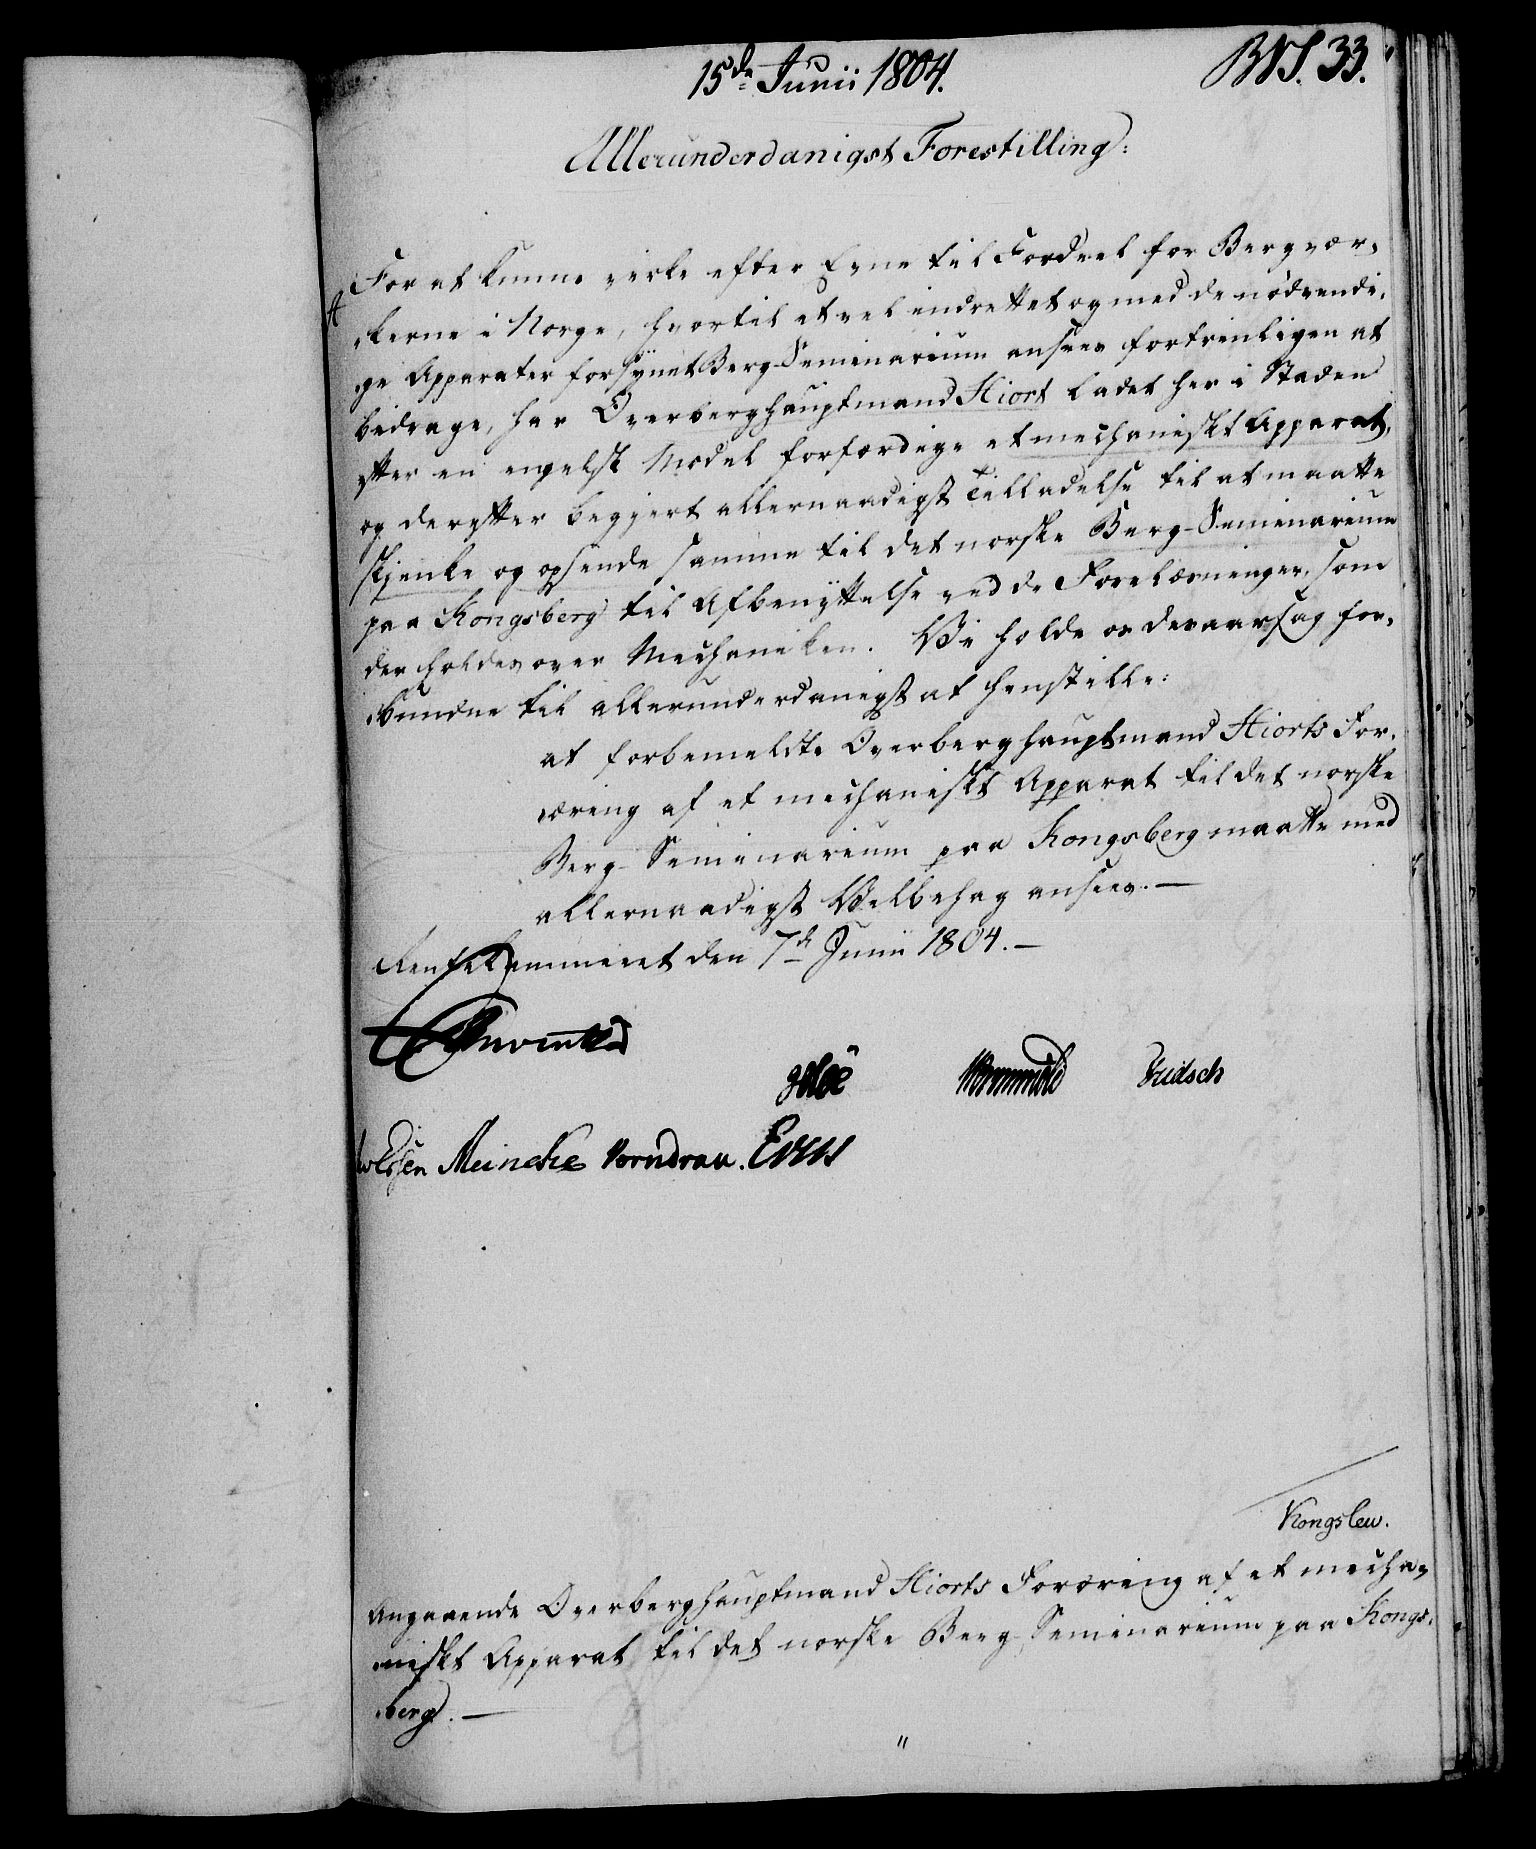 15de Junii 1804.
BNS. 33.
Allerunderdanigst Forestilling:
For at kunne virke efter Evne til Fordeel for Bergvær,
kerne i Norge, hvortil et vel indrettet og med de nödvendi,
ge Apparater forsÿnet Berg-Seminarium ansees fortrinligen at
bidrage, har Overberghauptmand Hiort ladet her i Staden
efter en engelsk Model forfærdige et mechaniskt Apparat,
og derefter begjert allernaadigst Tilladelse til at maatte
skjenke og opsende samme til det norske Berg-Seminarium
paa Kongsberg til Afbenÿttelse ved de Forelæsninger, som
der holdes over Mechaniken. Vi holde os deraarsag for,
bundne til allerunderdanigst at henstille:
at forbemeldte Overberghauptmand Hiorts For,
æring af et mechaniskt Apparat til det norske
Berg-Seminarium paa Kongsberg maatte med
allernaadigst Velbehag ansees.—
Rentekammeret den 7de Junii 1804.—
Meincke Vorndran.
Kongslew.
Angaaende Overberghauptmand Hiorts Foræring af et mecha,
niskt Apparat til det norske Berg-Seminarium paa Kongs,
berg.—